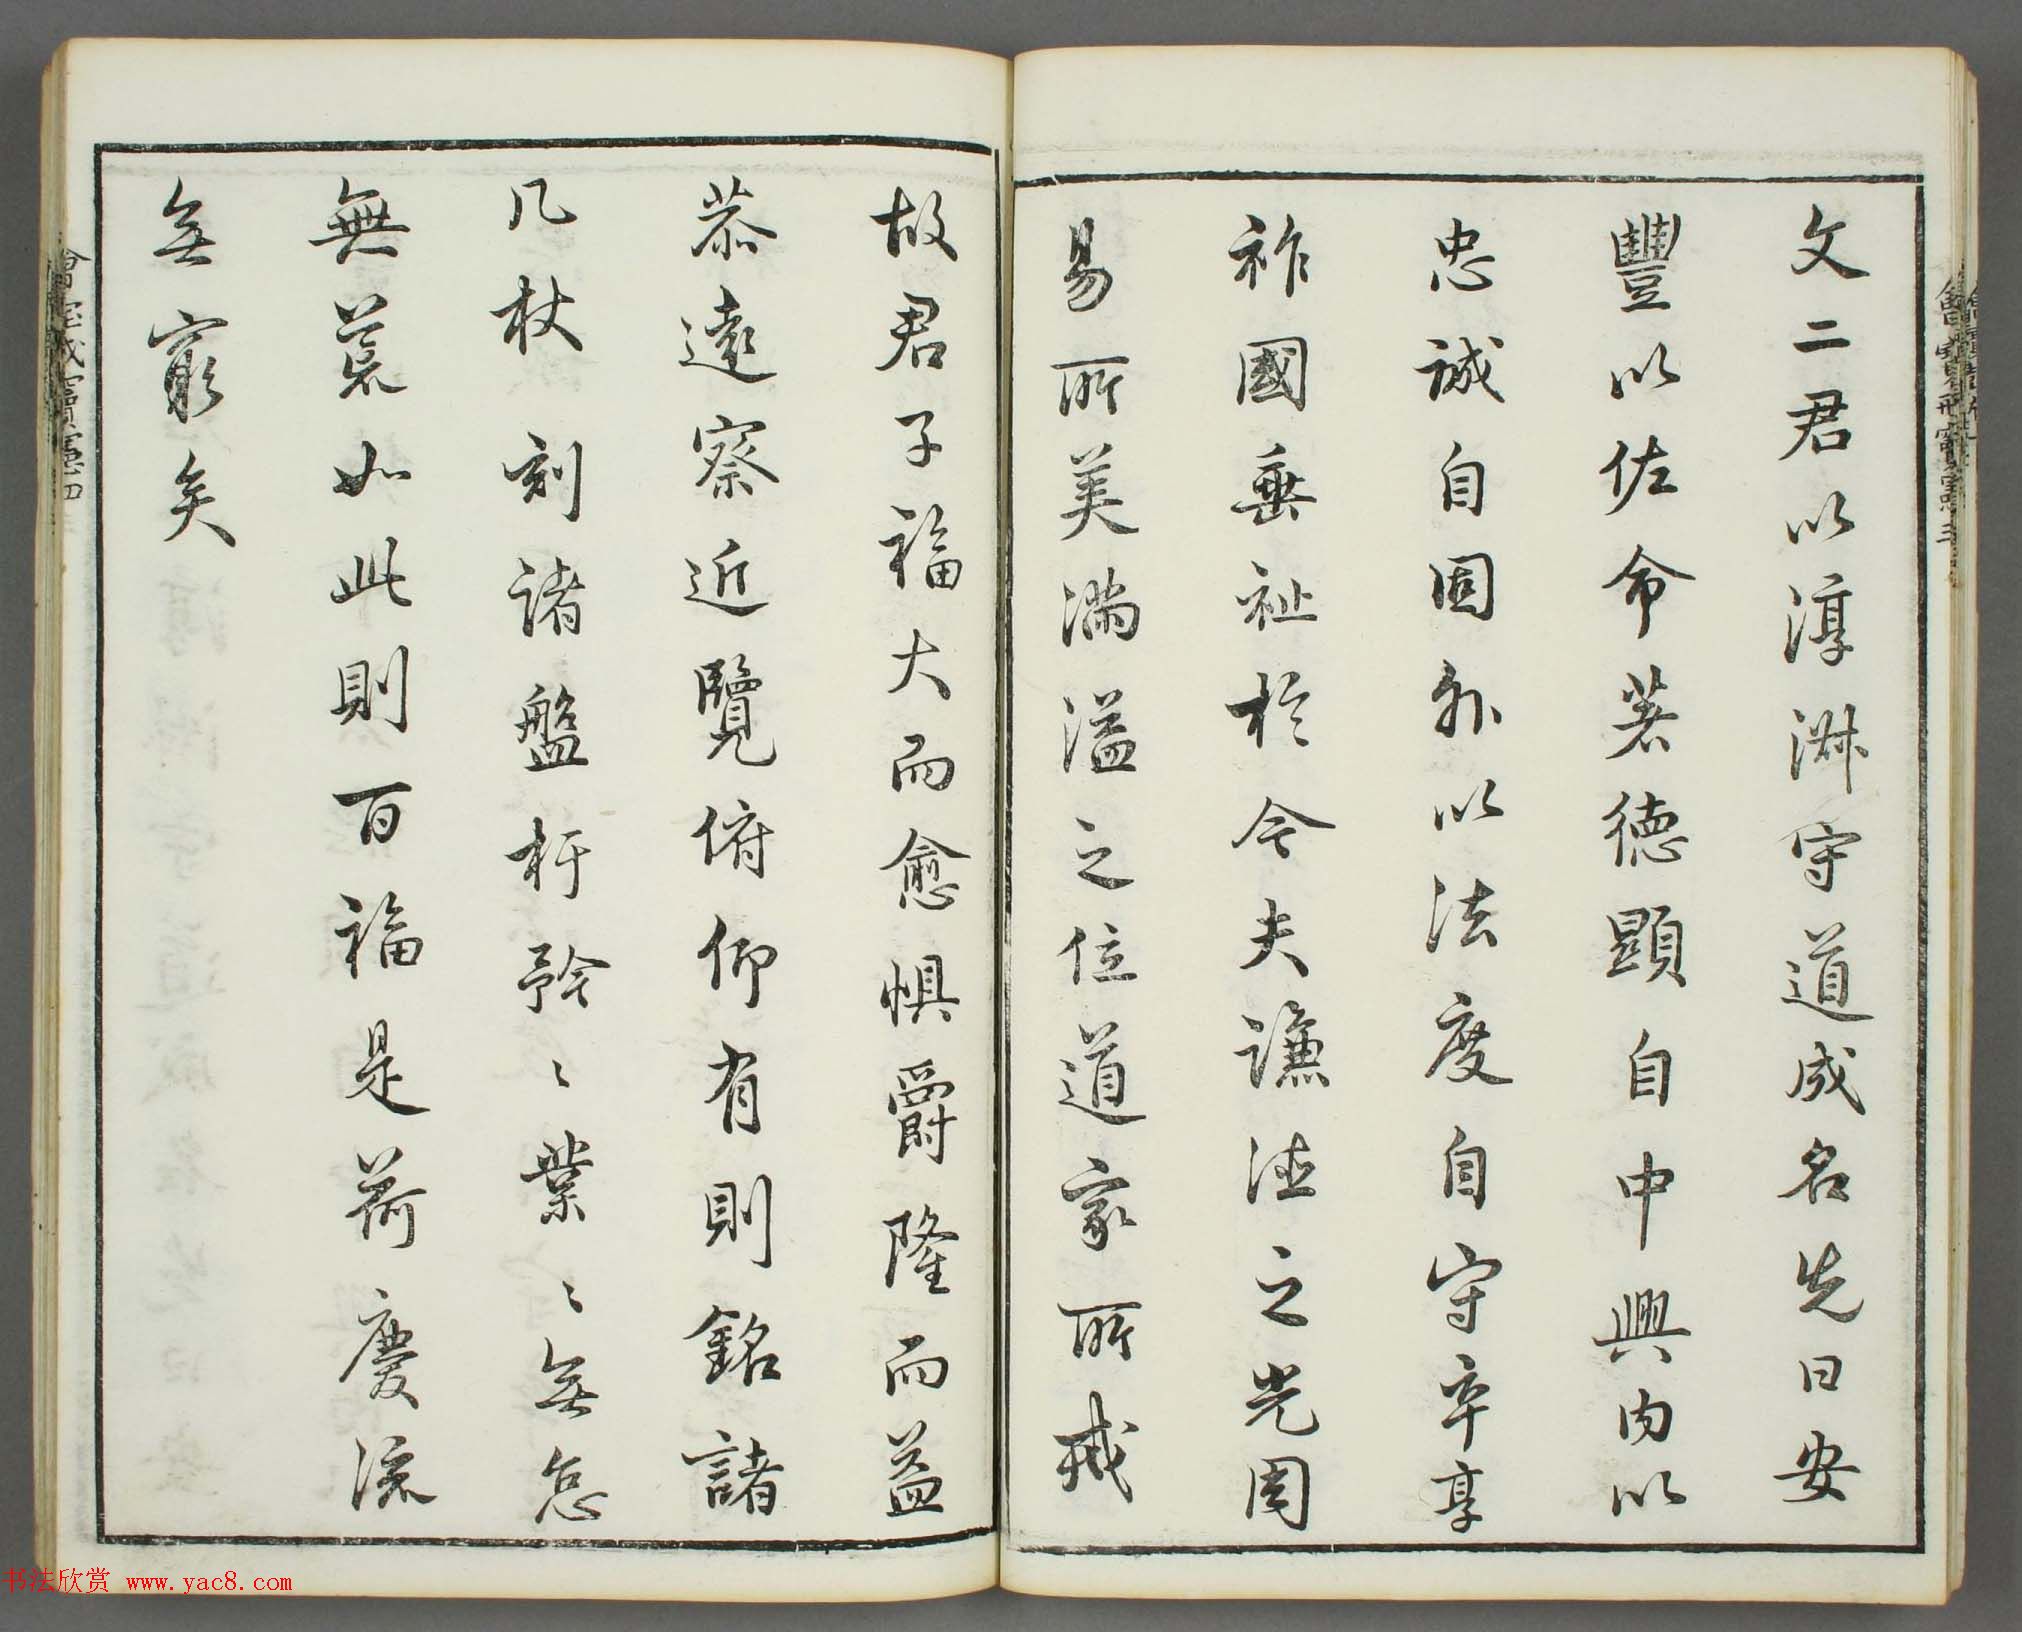 文二君以淳淑守道成名先日安
豐以佐命著德顯自中興内以
忠誠自固外以法度自守卒享
祚國垂祉於今夫謙德之光周
易所美滿溢之位道家所戒
故君子福大而愈懼爵隆而益
恭遠察近覽俯仰有則銘諸
几杖刻諸盤杅矜〻業〻無怠
無荒如此則百福是荷慶流
無窮矣
书法欣赏 www.yac8.com